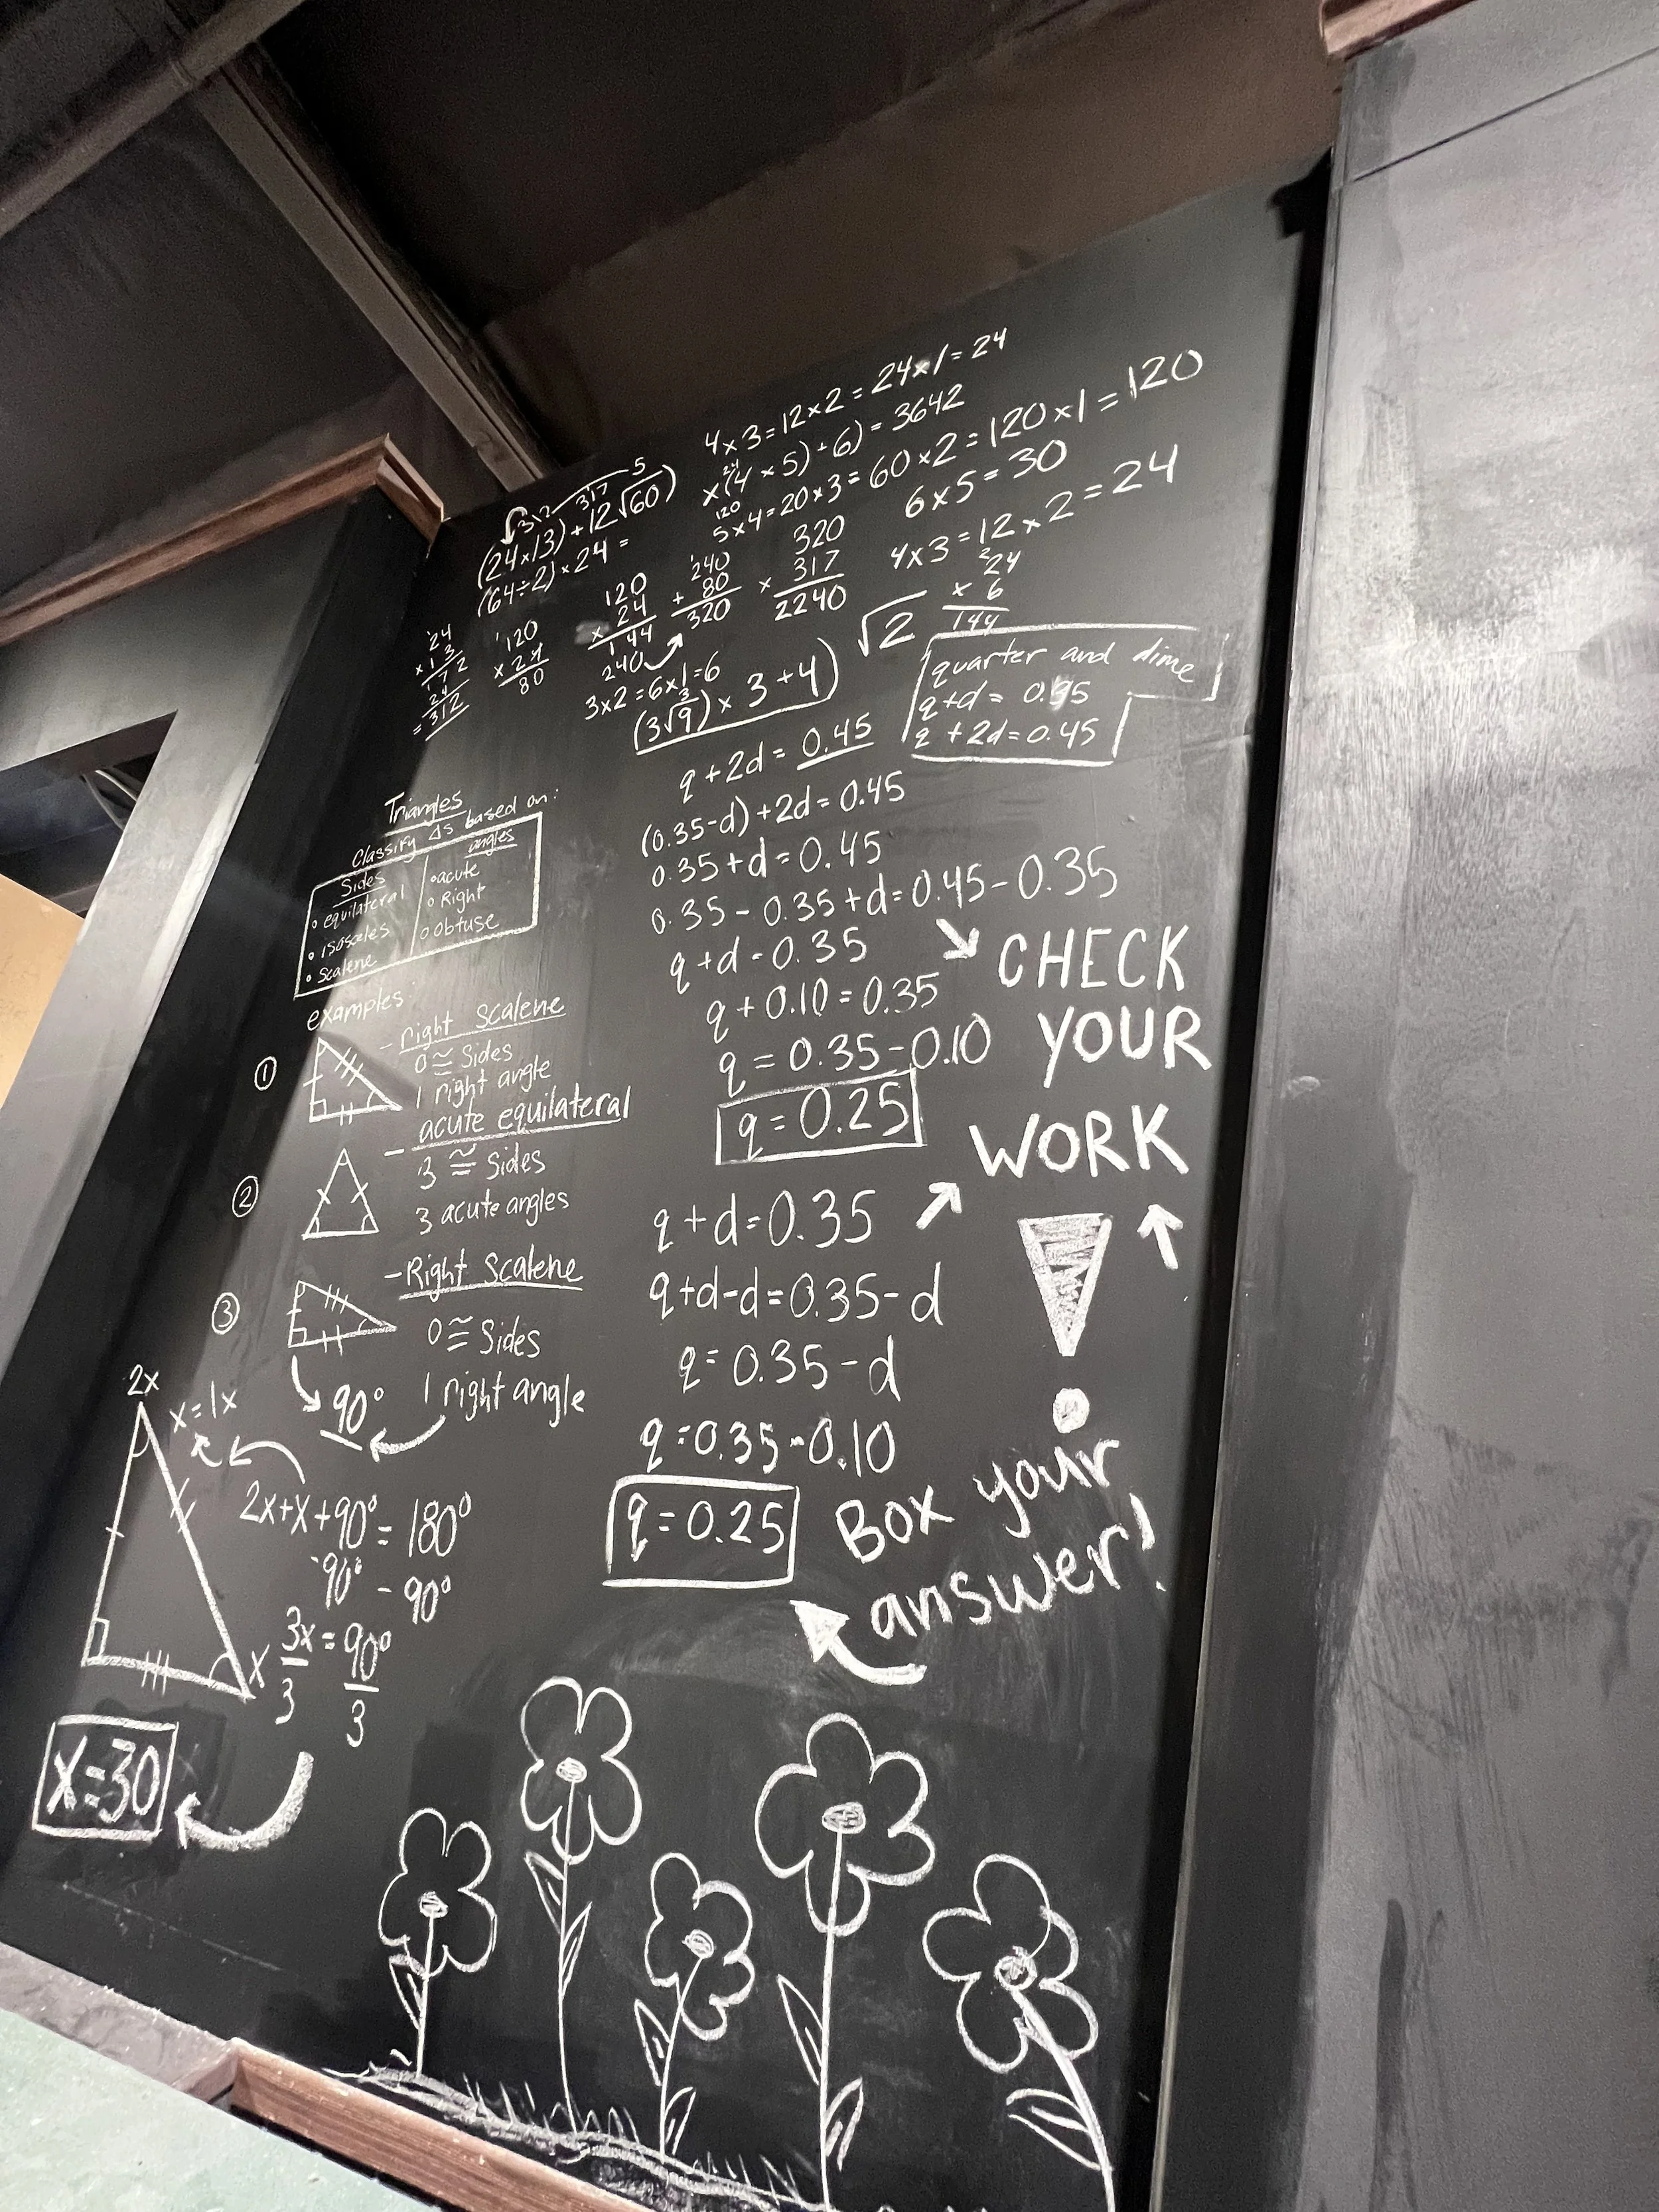 4×3=12×2=24×1=24
×(4×5)+6)=3642
5×4=20×3=60×2=120×1=120
6×5=30
4×3=12×2=24
(24×13)+12√60)
5
312
317
(64÷2)×24=
24
×13
172
24
=312
120
×24
80
120
×24
144
240
240
+80
320
320
×317
2240
24
×6
144
3×2=6×1=6
(3√9)×3+4)
3
√2
quarter and dime
q+d=0.35
q+2d=0.45
q+2d=0.45
(0.35-d)+2d=0.45
0.35+d=0.45
0.35-0.35+d=0.45-0.35
q+d=0.35
q+0.10=0.35
q=0.35-0.10
q=0.25
CHECK
YOUR
WORK
q+d=0.35
q+d-d=0.35-d
q=0.35-d
q=0.35-0.10
q=0.25
Box your
answer!
Triangles
Classify Δs based on:
Sides
• equilateral
• isosceles
• scalene
angles
• acute
• Right
• obtuse
examples:
① - right scalene
0 ≅ Sides
1 right angle
② - acute equilateral
3 ≅ Sides
3 acute angles
③ - Right Scalene
0 ≅ Sides
1 right angle
90°
2x
x=1x
2x+x+90°=180°
-90° -90°
x
3x=90°
3 3
x=30